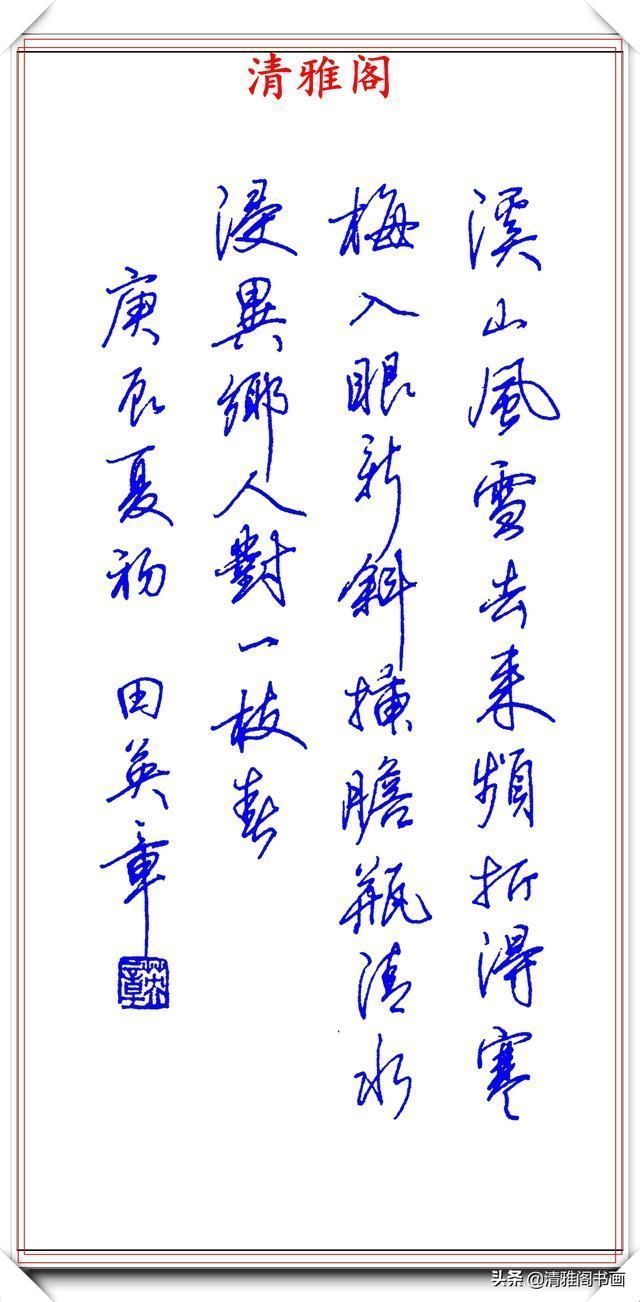 清雅阁
溪山風雪去来頻折得寒
梅入眼新斜插膽瓶清水
浸異鄉人對一枝春
庚辰夏初 田英章
英章
头条@清雅阁书画